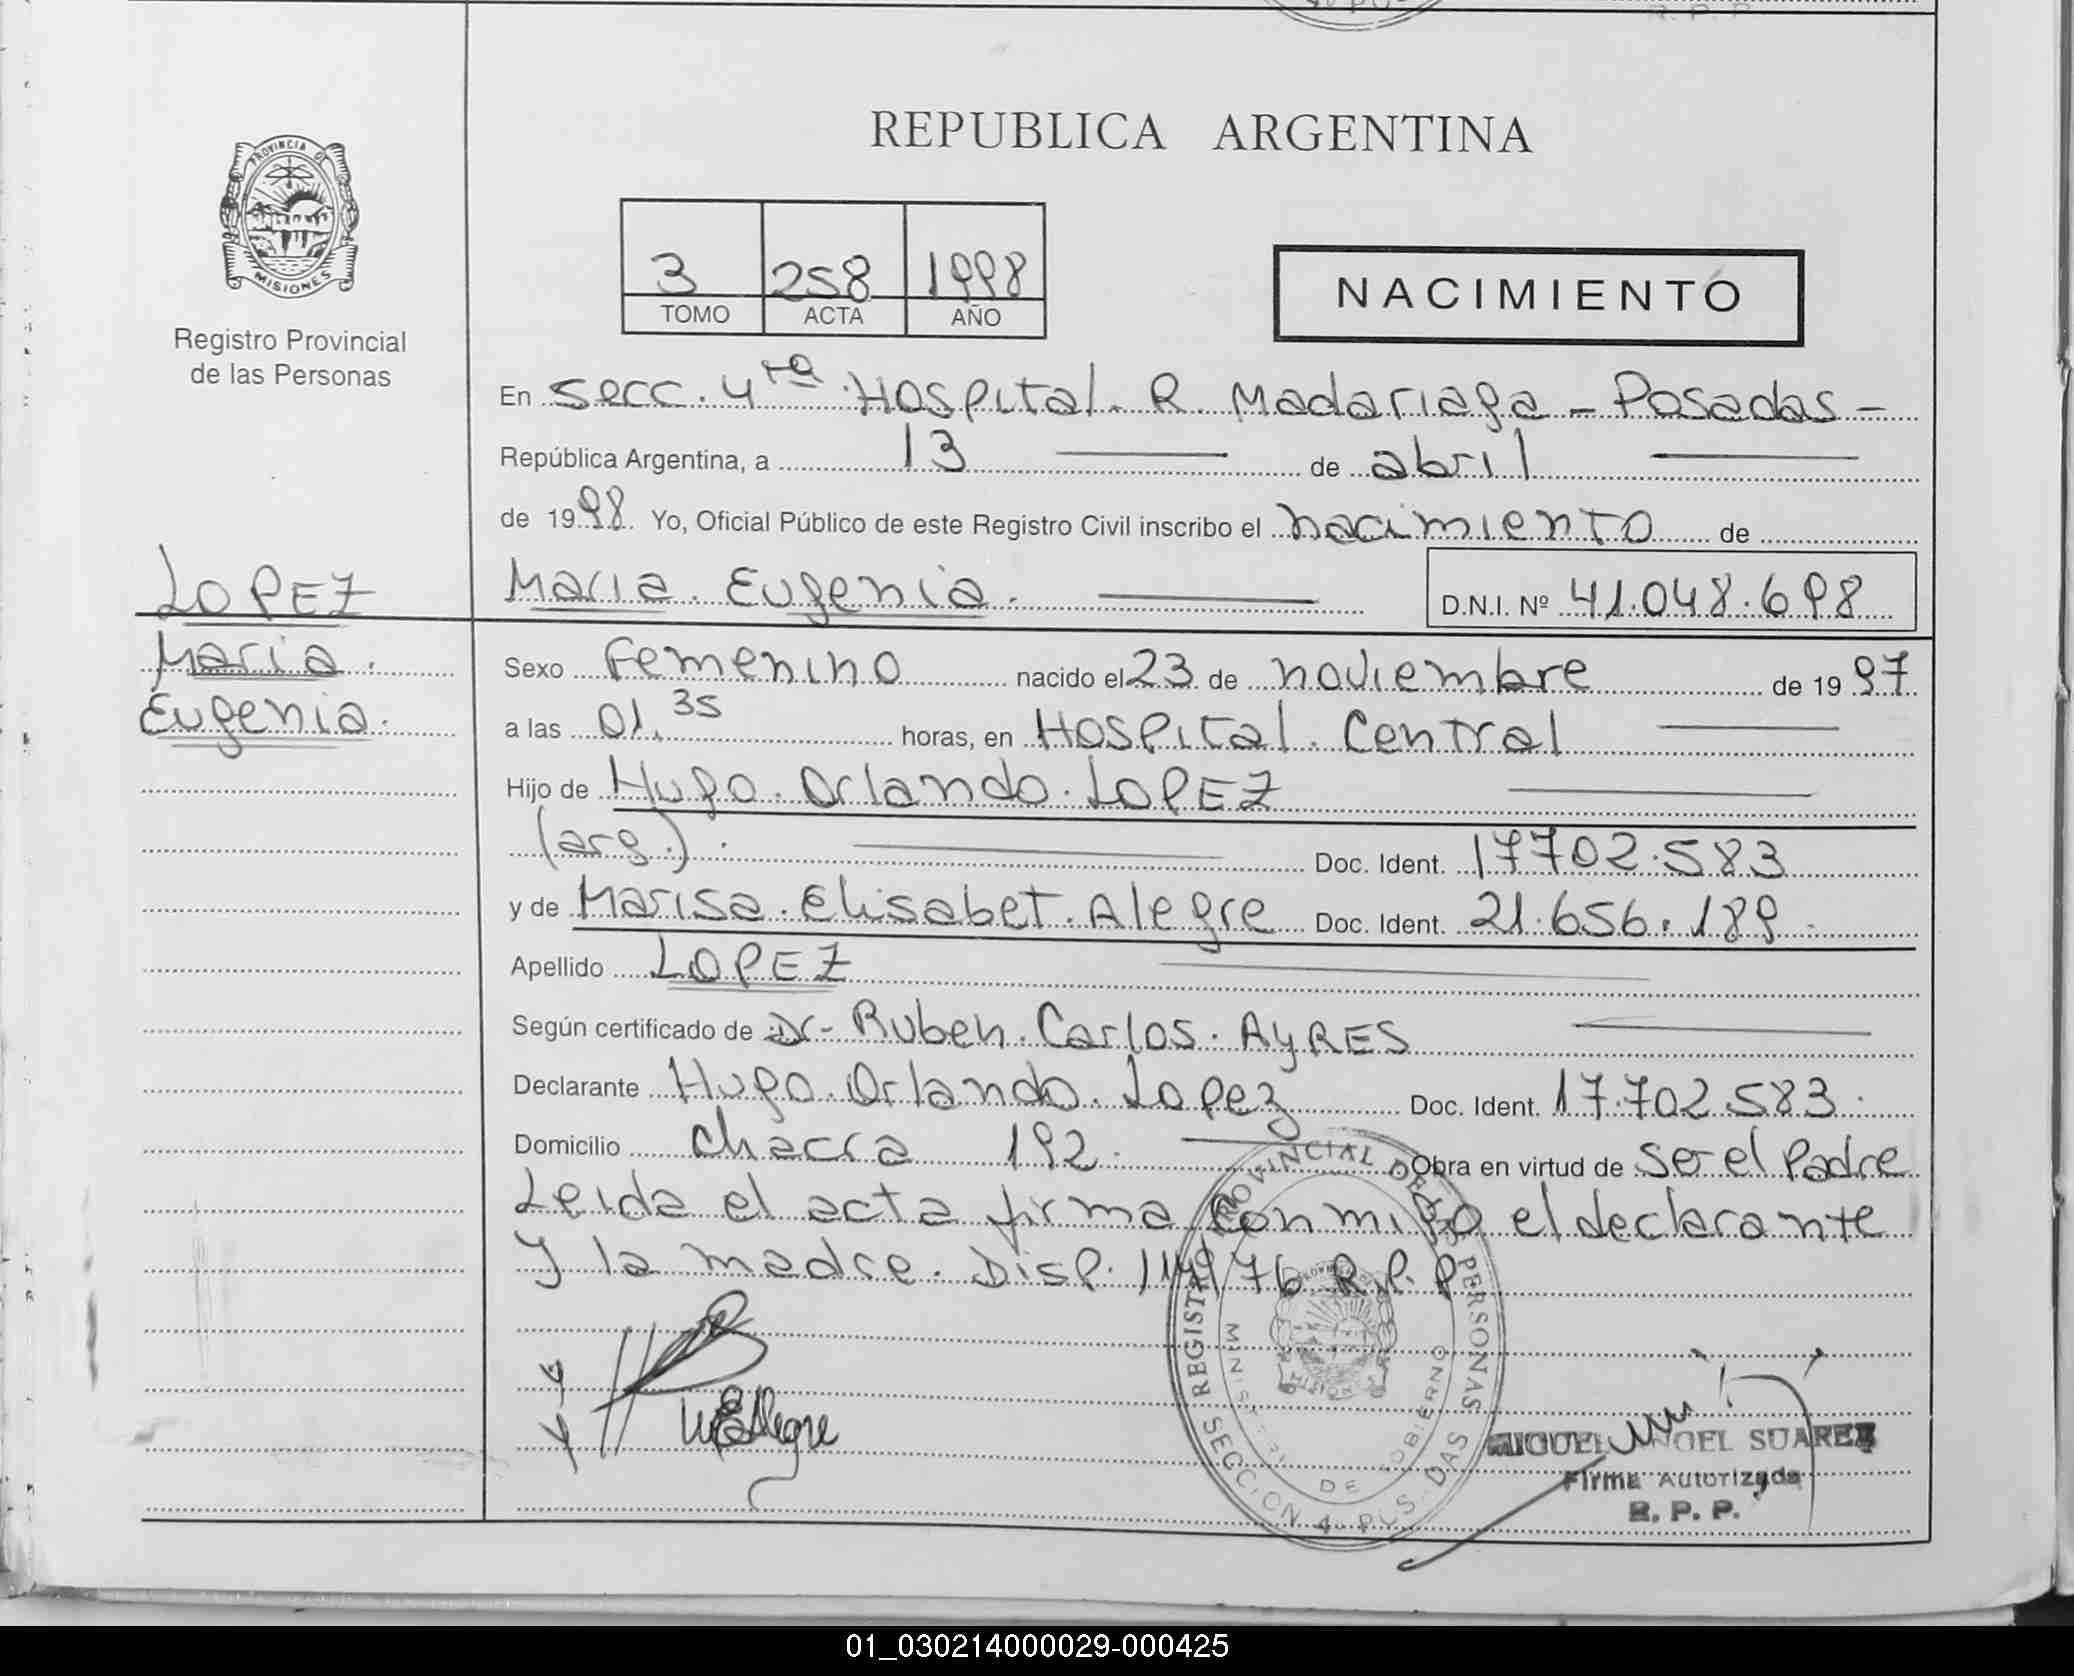 REPUBLICA ARGENTINA
PROVINCIA D
MISIONES
3 258 1998
TOMO ACTA AÑO
NACIMIENTO
Registro Provincial
de las Personas
En secc. 4ta. Hospital. R. Madariaga - Posadas -
República Argentina, a 13 de abril
de 1998. Yo, Oficial Público de este Registro Civil inscribo el nacimiento de
LOPEZ
Maria.
Eugenia.
Maria. Eugenia. D.N.I. Nº 41.048.698
Sexo Femenino nacido el 23 de noviembre de 1997
a las 01.35 horas, en Hospital. Central
Hijo de Hugo. Orlando. LOPEZ
(arg.). Doc. Ident. 17702.583
y de Marisa. Elisabet. Alegre Doc. Ident. 21.656.189.
Apellido LOPEZ
Según certificado de Dr- Ruben. Carlos. AyRES
Declarante Hugo. Orlando. Lopez Doc. Ident. 17.702.583.
Domicilio chacra 192. Obra en virtud de ser el Padre
Leida el acta firma conmigo el declarante
y la madre. Disp. 114/76 R.P.P
MEAlegre
REGISTRO PROVINCIAL DE LAS PERSONAS
MINISTERIO DE GOBIERNO
MISIONES
SECCION 4 POSADAS
MIGUEL ANGEL SUAREZ
Firma Autorizada
R. P. P.
01_030214000029-000425